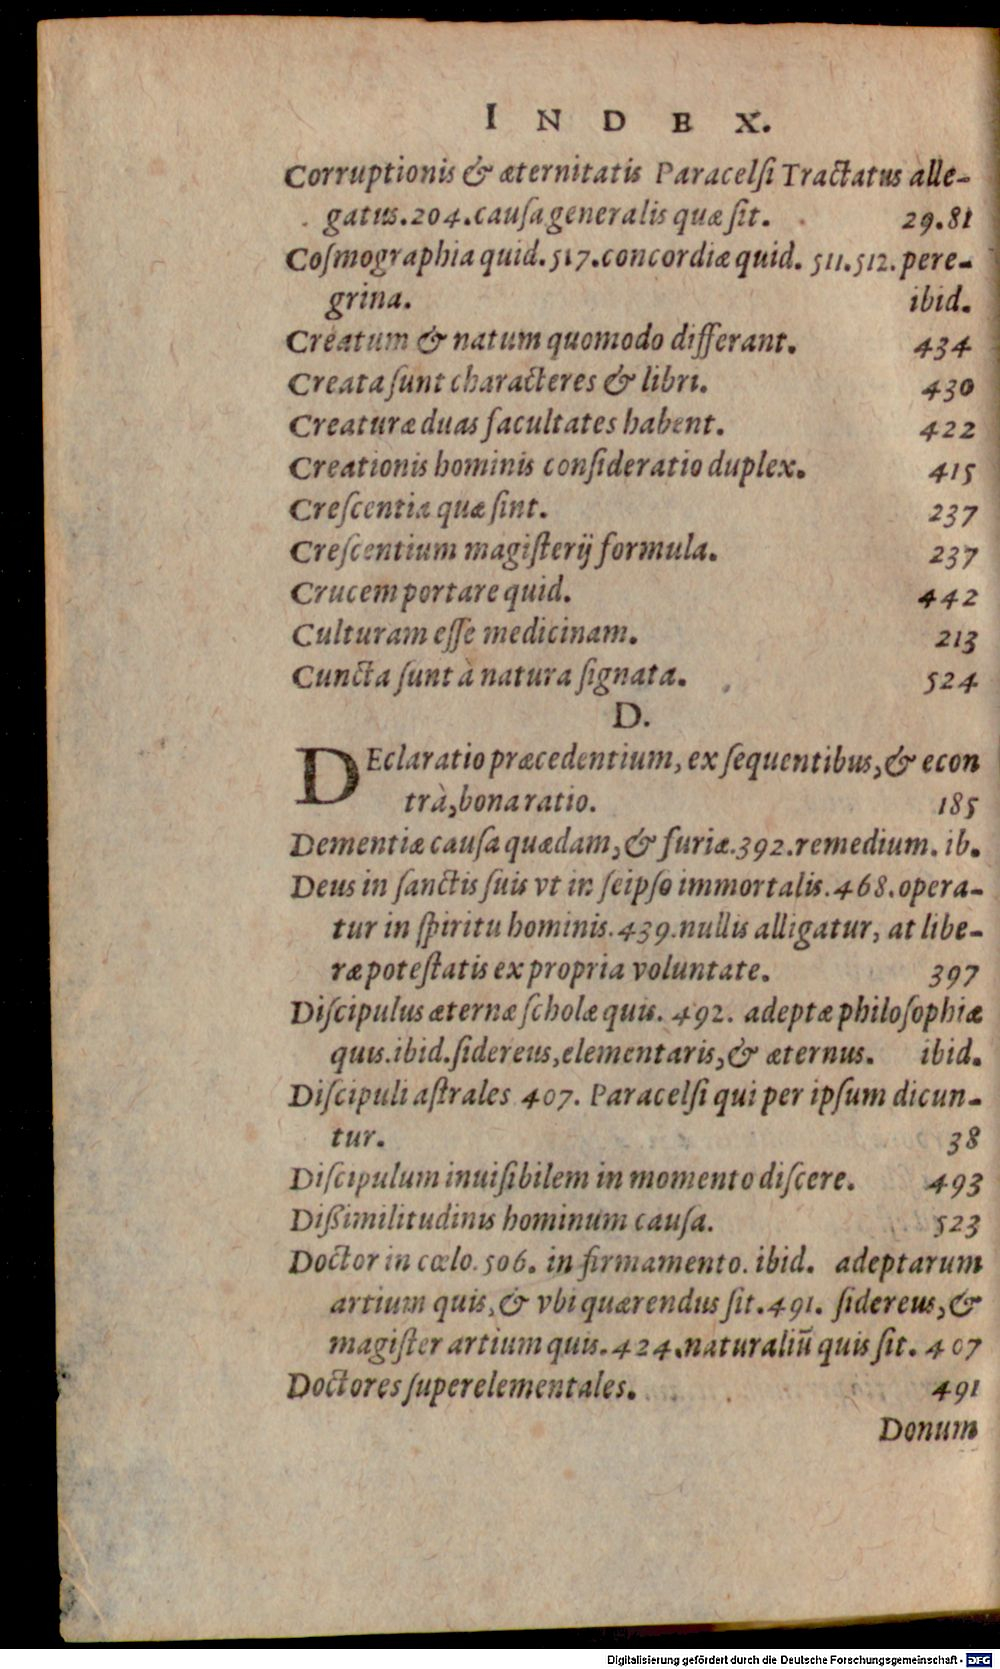 INDEX.
Corruptionis & æternitatis Paracelſi Tractatus alle-
gatus. 204. cauſa generalis quæ ſit. 29.81
Coſmographia quid. 517. concordiæ quid. 511.512. pere-
grina. ibid.
Creatum & natum quomodo differant. 434
Creata ſunt characteres & libri. 430
Creaturæ duas facultates habent. 422
Creationis hominis conſideratio duplex. 415
Creſcentia quæ ſint. 237
Creſcentium magiſterij formula. 237
Crucem portare quid. 442
Culturam eſſe medicinam. 213
Cuncta ſunt à natura ſignata. 524
D.
DEclaratio præcedentium, ex ſequentibus, & econ
trà, bona ratio. 185
Dementiæ cauſa quædam, & furiæ. 392. remedium. ib.
Deus in ſanctis ſuis vt in ſeipſo immortalis. 468. opera-
tur in ſpiritu hominis. 439. nullis alligatur, at libe-
ræ poteſtatis ex propria voluntate. 397
Diſcipulus æternæ ſcholæ quis. 492. adeptæ philoſophiæ
quis. ibid. ſidereus, elementaris, & æternus. ibid.
Diſcipuli aſtrales 407. Paracelſi qui per ipſum dicun-
tur. 38
Diſcipulum inuiſibilem in momento diſcere. 493
Dißimilitudinis hominum cauſa. 523
Doctor in cœlo. 506. in firmamento. ibid. adeptarum
artium quis, & vbi quærendus ſit. 491. ſidereus, &
magiſter artium quis. 424. naturaliū quis ſit. 407
Doctores ſuperelementales. 491
Donum
Digitalisierung gefördert durch die Deutsche Forschungsgemeinschaft - DFG